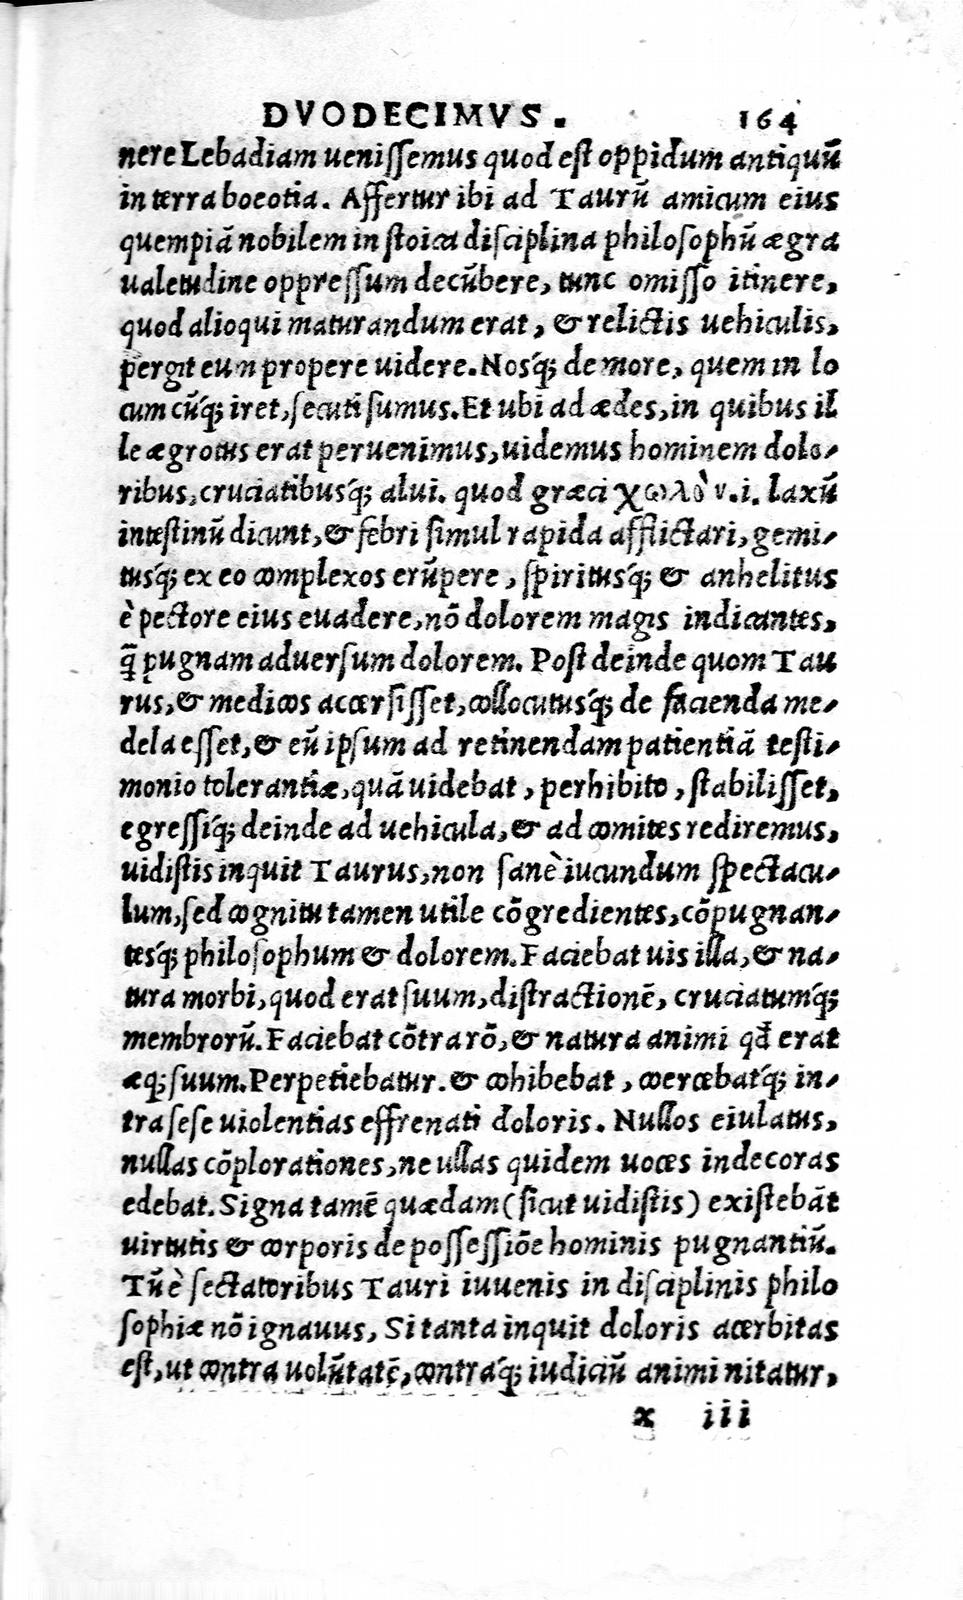 DVODECIMVS. 164
nere Lebadiam uenissemus quod est oppidum antiquũ
in terra boeotia. Affertur ibi ad Taurũ amicum eius
quempiã nobilem in stoica disciplina philosophũ ægra
ualetudine oppressum decũbere, tunc omisso itinere,
quod alioqui maturandum erat, & relictis uehiculis,
pergit eum propere uidere. Nosq́; de more, quem in lo
cum cũq́; iret, secuti sumus. Et ubi ad ædes, in quibus il
le ægrotus erat peruenimus, uidemus hominem dolo-
ribus, cruciatibusq́; alui. quod græci χωλὸν.i. laxũ
intestinũ dicunt, & febri simul rapida afflictari, gemi-
tusq́; ex eo complexos erũpere, spiritusq́; & anhelitus
è pectore eius euadere, nõ dolorem magis indicantes,
q̃ pugnam aduersum dolorem. Post deinde quom Tau
rus, & medicos accersisset, collocutusq́; de facienda me-
dela esset, & eũ ipsum ad retinendam patientiã testi-
monio tolerantiæ, quã uidebat, perhibito, stabilisset,
egressiq́; deinde ad uehicula, & ad comites rediremus,
uidistis inquit Taurus, non sanè iucundum spectacu-
lum, sed cognitu tamen utile cõgredientes, cõpugnan-
tesq́; philosophum & dolorem. Faciebat uis illa, & na-
tura morbi, quod erat suum, distractionẽ, cruciatumq́;
membrorũ. Faciebat cõtra rõ, & natura animi qđ erat
æq; suum. Perpetiebatur. & cohibebat, coercebatq́; in-
tra sese uiolentias effrenati doloris. Nullos eiulatus,
nullas cõplorationes, ne ullas quidem uoces indecoras
edebat. Signa tamẽ quædam (sicut uidistis) existebãt
uirtutis & corporis de possessiõe hominis pugnantiũ.
Tũ è sectatoribus Tauri iuuenis in disciplinis philo
sophiæ nõ ignauus, Si tanta inquit doloris acerbitas
est, ut contra uolũtatẽ, contraq́; iudiciũ animi nitatur,
x iii